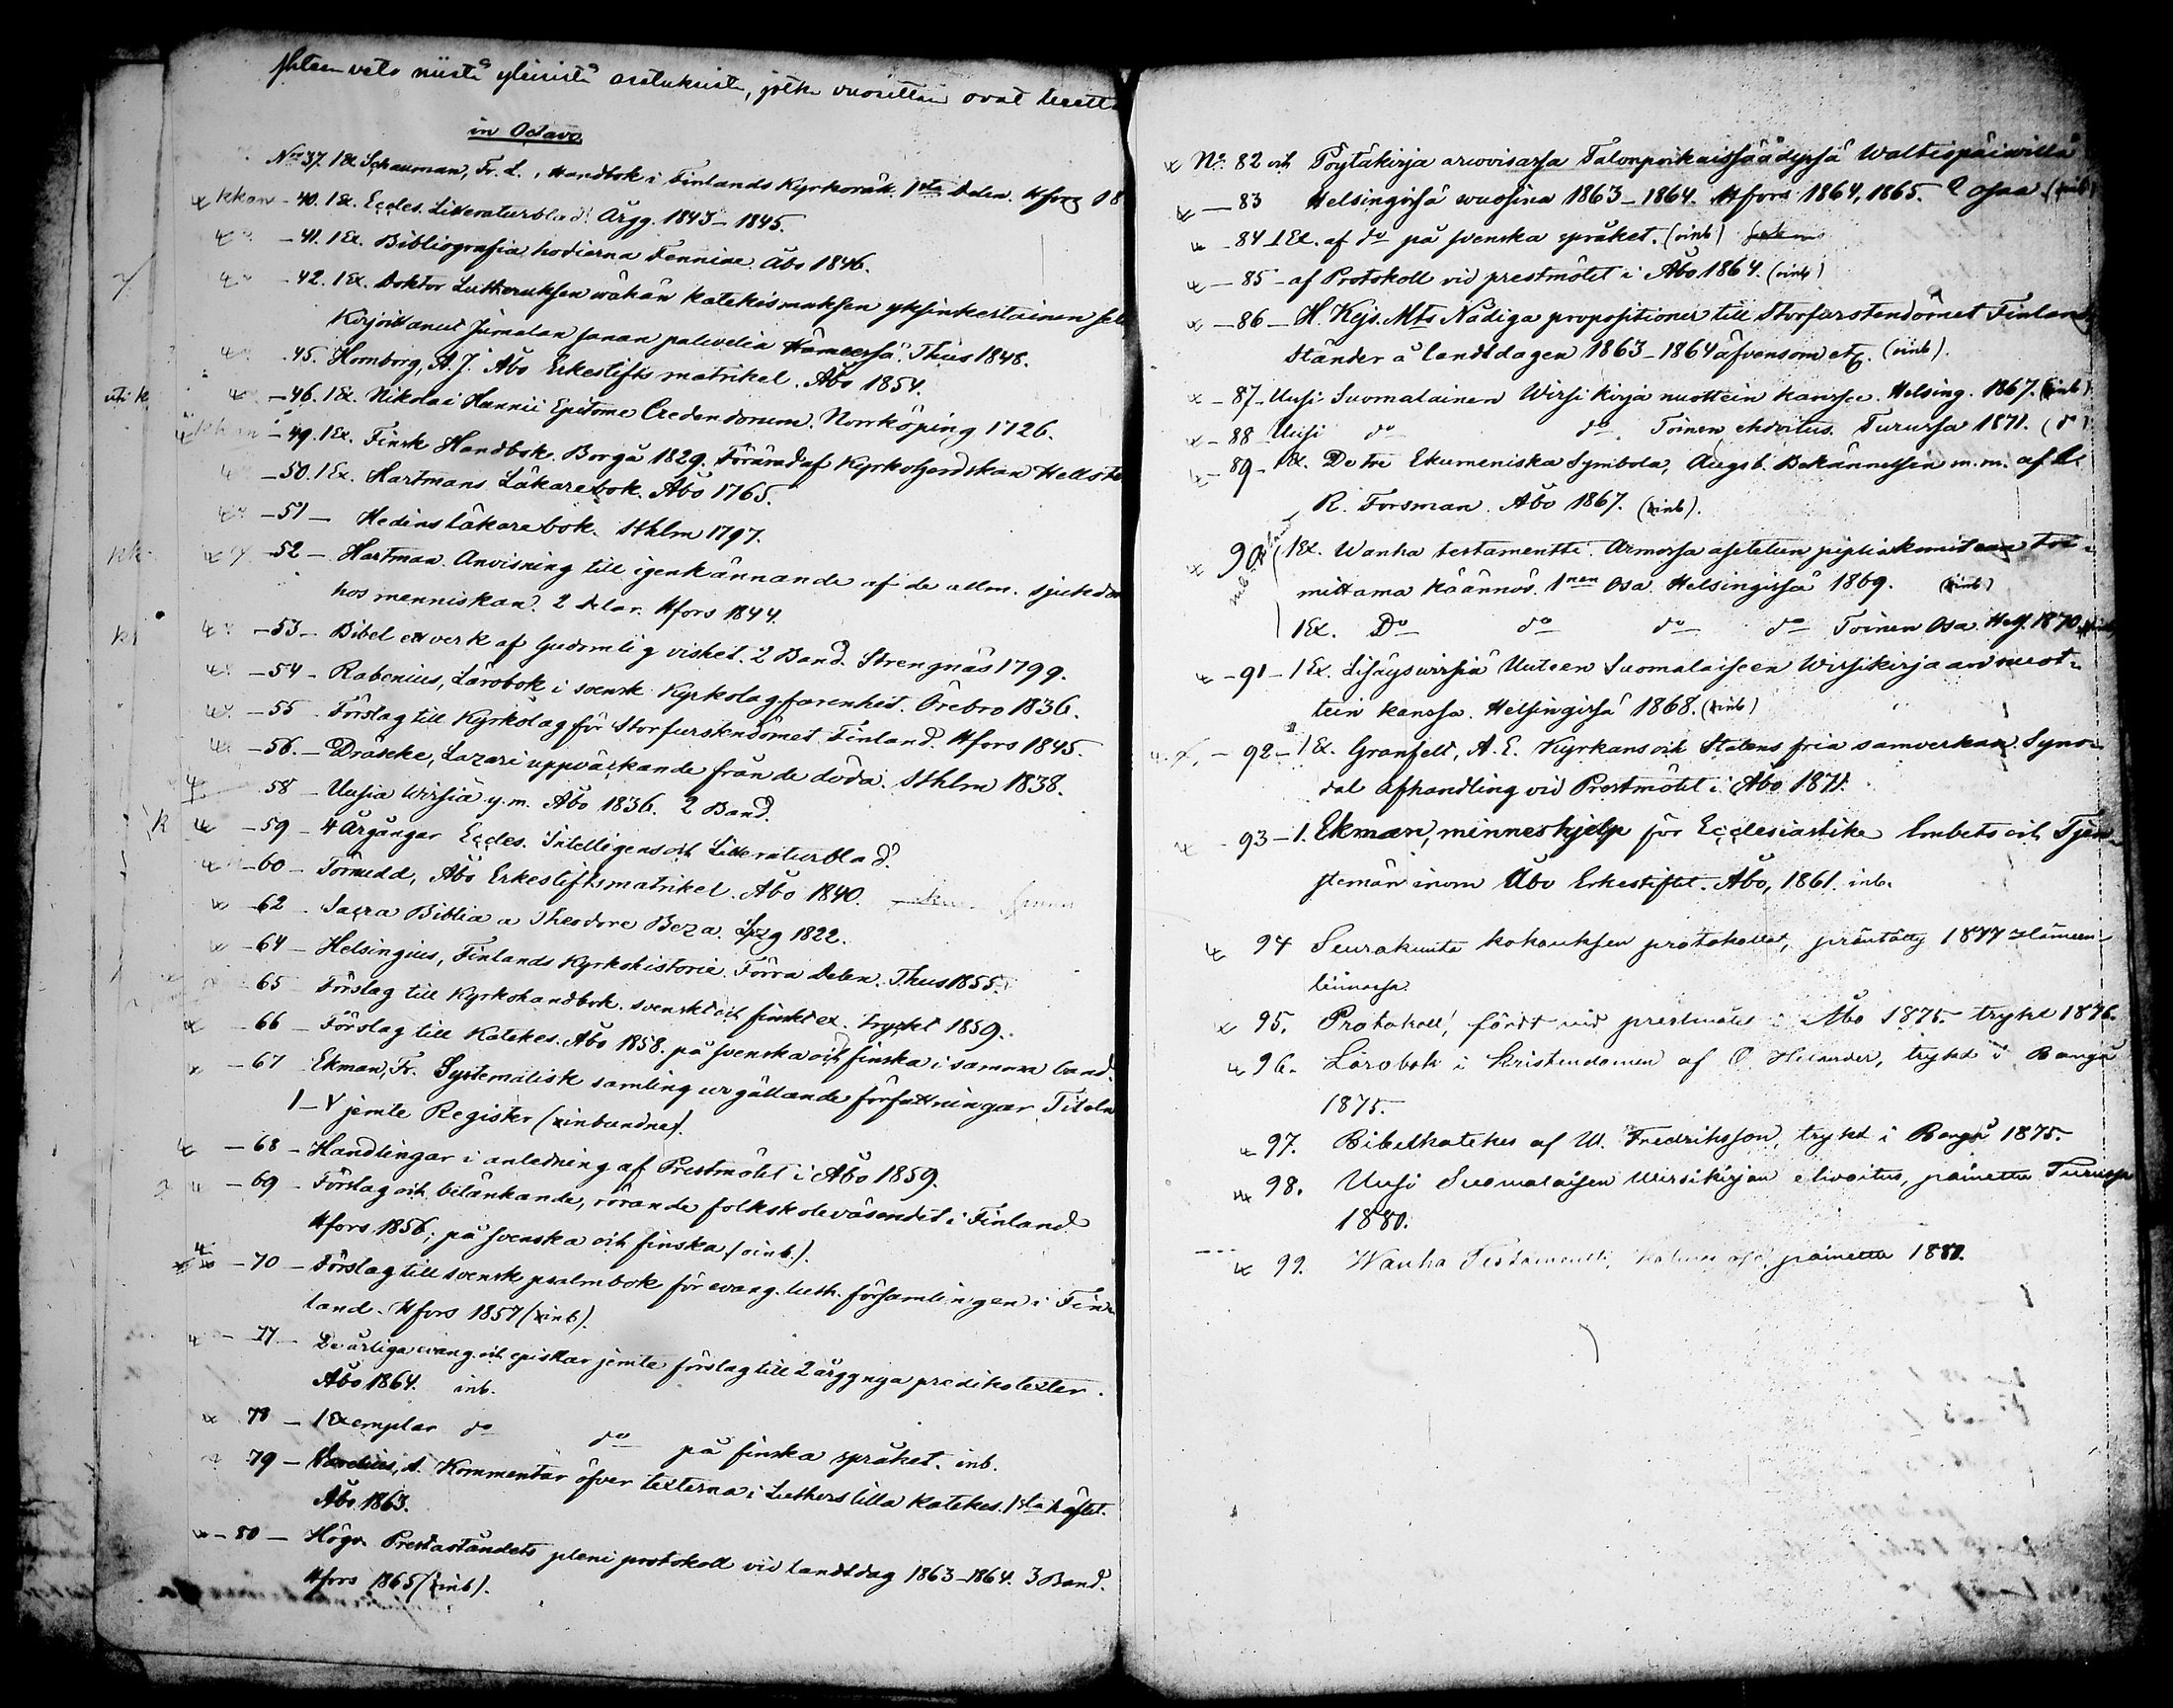 Yhteenveto niistä yleisistä asetuksista, jotka vuosittain ovat
in Octavo
No 37. 1 Ex. Schauman, Fr. L., Handbok i Finlands Kyrkorätt. 1sta Delen. Hfors 18
- 40. 1 Ex. Eccles. Litteraturblad Årgg. 1843-1845.
- 41. 1 Ex. Bibliografia hodierna Fenniae. Åbo 1846.
- 42. 1 Ex. Doktor Lutheruksen wähän Katekismuksen yksinkertainen
Kirjoittanut Jumalan sanan palvelia Hämeessä. Thus 1848.
45. Hornborg, A. J. Åbo Erkestifts matrikel. Åbo 1854.
- 46. 1 Ex. Nikolai Hunnii Epitome Credendorum. Norrköping 1726.
- 49. 1 Ex. Finsk Handbok. Borgå 1829. Förärad af Kyrkoherdskan
- 50. 1 Ex. Hartmans Läkarebok. Åbo 1765.
- 51 - Hedins läkarebok. Sthlm 1797.
- 52 - Hartman Anvisning till igenkännande af de allm. sjukdom
hos menniskan. 2 Delar. Hfors 1844.
- 53 - Bibel ett verk af Gudomlig vishet. 2 Band. Strengnäs 1799.
- 54 - Rabenius, Lärobok i svensk Kyrkolagfarenhet. Örebro 1836.
- 55 - Förslag till Kyrkolag för Storfurstendömet Finland. Hfors 1845.
- 56. - Dräseke, Lazari uppväckande från de döda. Sthlm 1838.
58 - Uusia Wirsiä y.m. Åbo 1836. 2 Band.
- 59 - 4 Årgångar Eccles. Intelligens och Litteraturblad.
- 60 - Törnudd, Åbo Erkestiftsmatrikel. Åbo 1840.
- 62 - Sacra Biblia a Theodore Beza. Lpzg 1822.
- 64 - Helsingius, Finlands Kyrkohistorie. Förra Delen. T.hus 1855.
65 Förslag till Kyrkohandbok. svenskt och finskt ex. tryckt 1859.
- 66 - Förslag till Katekes. Åbo 1858. på svenska och finska i samma band.
- 67 Ekman, Fr. Systematisk samling ur gällande författningar. Titeln
1-V jemte Register (inbundne).
- 68 - Handlingar i anledning af Prestmötet i Åbo 1859.
- 69 - Förslag och betänkande, rörande folkskoleväsendet i Finland
Hfors 1856; på svenska och finska (oinb.).
- 70 - Förslag till svensk psalmbok för evang. luth. församlingen i Fin-
land. Hfors 1857 (inb).
- 77 - De årliga evang. och epistlar jemte förslag till 2 årgånga predikotexter.
Åbo 1864. inb.
78 - 1 Exemplar do do på finska språket. inb.
79 - A. Kommentar öfver texterna i Luthers lilla Katekes. 1sta häftet.
Åbo 1863.
- 80 - Högv. Presteståndets pleni protokoll vid landtdag 1863-1864. 3 Band.
Hfors 1865 (inb).
No 82 och Pöytäkirja arwoisassa Talonpoikaissäädyssä Waltiopäiwillä
- 83 Helsingissä wuosina 1863-1864. Hfors 1864, 1865. 2 osaa. (inb)
- 84 1 Ex. af do på svenska språket. (oinb)
- 85 - af Protokoll vid prestmötet i Åbo 1864. (oinb)
- 86 - H. Kejs. Mts Nådiga propositioner till Storfurstendömet Finlands
Ständer å landtdagen 1863-1864 äfvensom etc. (oinb).
- 87 - Uusi Suomalainen Wirsikirja nuottein kanssa. Helsing. 1867. (inb)
- 88 Uusi do do. Toinen ehdoitus. Turussa 1871. (do)
- 89 - 1 Ex. De tre Ekumeniska Symbola, Augsb. Bekännelsen m.m. af A.
R. Forsman. Åbo 1867. (inb).
90 1 Ex. Wanha testamentti. Armossa asetetun pipliakomitean toi-
mittama käännös. 1nen Osa. Helsingissä 1869. (inb)
1 Ex. Do do do do Toinen Osa. Helf. 1870.
- 91 - 1 Ex. Lisäyswirsiä Uuteen Suomalaiseen Wirsikirjaan nuot-
tein kanssa. Helsingissä 1868. (inb)
- 92 - 1 Ex. Granfelt, A. E. Kyrkans och Statens fria samverkan. Syno-
dal Afhandling vid Prestmötet i Åbo 1871.
- 93 - 1. Ekman, minneshjelp för Ecclesiastike Embets och Tjen-
stemän inom Åbo Erkestiftet. Åbo, 1861. inb.
94 Seurakunta kokouksen protokollat, präntätty 1877 Hämeen-
linnassa.
95. Protokoll, fördt vid prestmötet i Åbo 1875. tryckt 1876.
96. Lärobok i Kristendomen af O. Helander, tryckt i Borgå
1875.
97. Bibelkatekes af W. Fredriksson, tryckt i Borgå 1875.
98. Uusi Suomalaisen Wirsikirjan ehdoitus, painettu Turussa
1880.
99. Wanha Testamentti, painettu 1880.